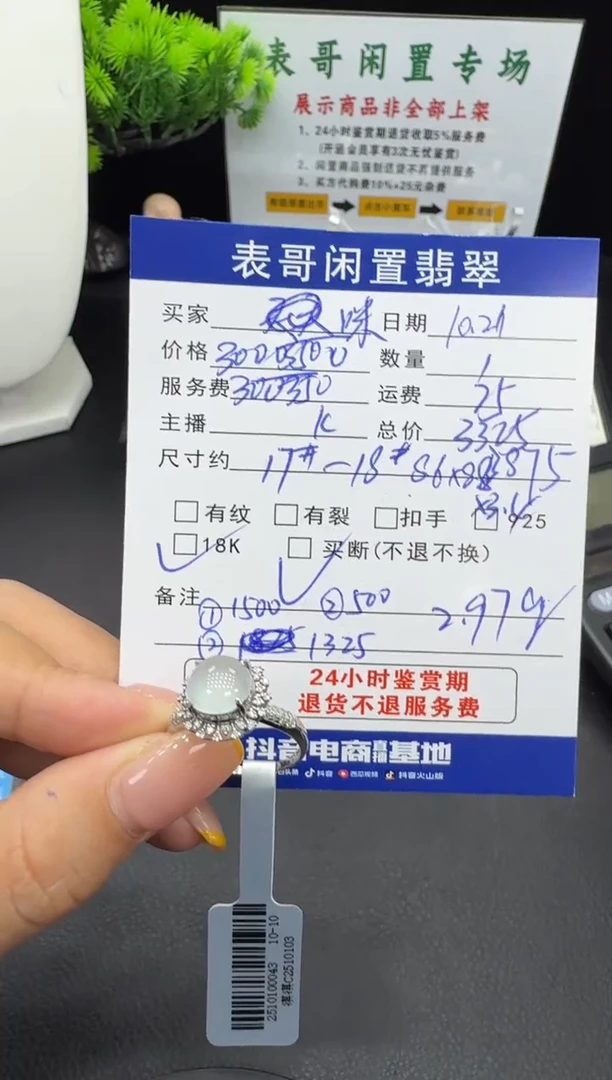 表哥闲置专场
展示商品非全部上架
1、24小时鉴赏期退货收取5%服务费
(开运会员享有3次无忧鉴赏)
2、闲置商品强制退货不再提供服务
3、买方代购费10%+25元杂费
表哥闲置翡翠
买家 珠 日期 10.21
价格 3000 数量 1
服务费 300 运费 25
主播 K 总价 3325
尺寸约 17#-18#
□有纹 □有裂 □扣手 □925
□18K □买断(不退不换)
备注 ①1500 ②500 2.97g
② 1325
24小时鉴赏期
退货不退服务费
抖音电商 基地
抖音 西瓜视频 抖音火山版
2510100043 10-10
C2510103